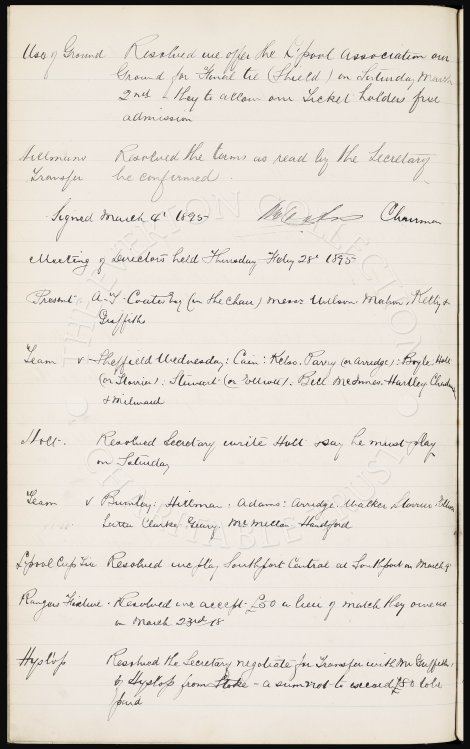 Use of Ground Resolved we offer the L'pool Association our
Ground for Final tie (Shield) on Saturday March
2nd. They to allow our Ticket holders free
admission
Hillmans Resolved the terms as read by the Secretary
Transfer be confirmed.
Signed March 4th 1895 Chairman
Meeting of Directors held Thursday Feby 28th 1895
Present A.T. Coates Esq (in the chair) Messrs Wilson Mahon, Kelly &
Griffiths
Team v Sheffield Wednesday: Cain: Kelso. Parry (or Arridge): Boyle Holt
(or Storrier): Stewart (or Elliott): Bell McInnes. Hartley Chadwick
& Milward
Holt. Resolved Secretary write Holt & say he must play
on Saturday
Team v Burnley: Hillman: Adams: Arridge. Walker Storrier: Elliott
Latta Clarke. Geary. McMillan. Handford
L'pool Cup Tie Resolved we play Southport Central at Southport on March 9
Rangers Fixture. Resolved we accept £50 in lieu of match they owe us
on March 23rd 18
Hyslop Resolved the Secretary negotiate for Transfer with Mr Griffiths
of Hyslop from Stoke - a sum not to exceed £80 to be
paid
THE EVERTON COLLECTION
CHARITABLE TRUST